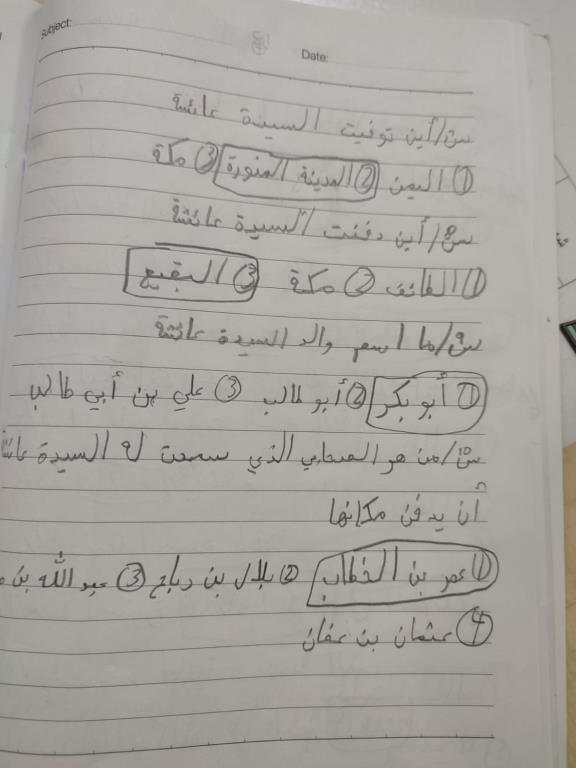 Subject:
Date:
س٧/أين توفيت السيدة عائشة
① اليمن ② المدينة المنورة ③ مكة
س٨/أين دفنت السيدة عائشة
① الطائف ② مكة ③ البقيع
س٩/ما اسم والد السيدة عائشة
① أبو بكر ② أبو طالب ③ علي بن أبي طالب
س١٠/من هو الصحابي الذي سمحت له السيدة
أن يدفن مكانها
① عمر بن الخطاب ② بلال بن رباح ③ عبد الله بن
④ عثمان بن عفان